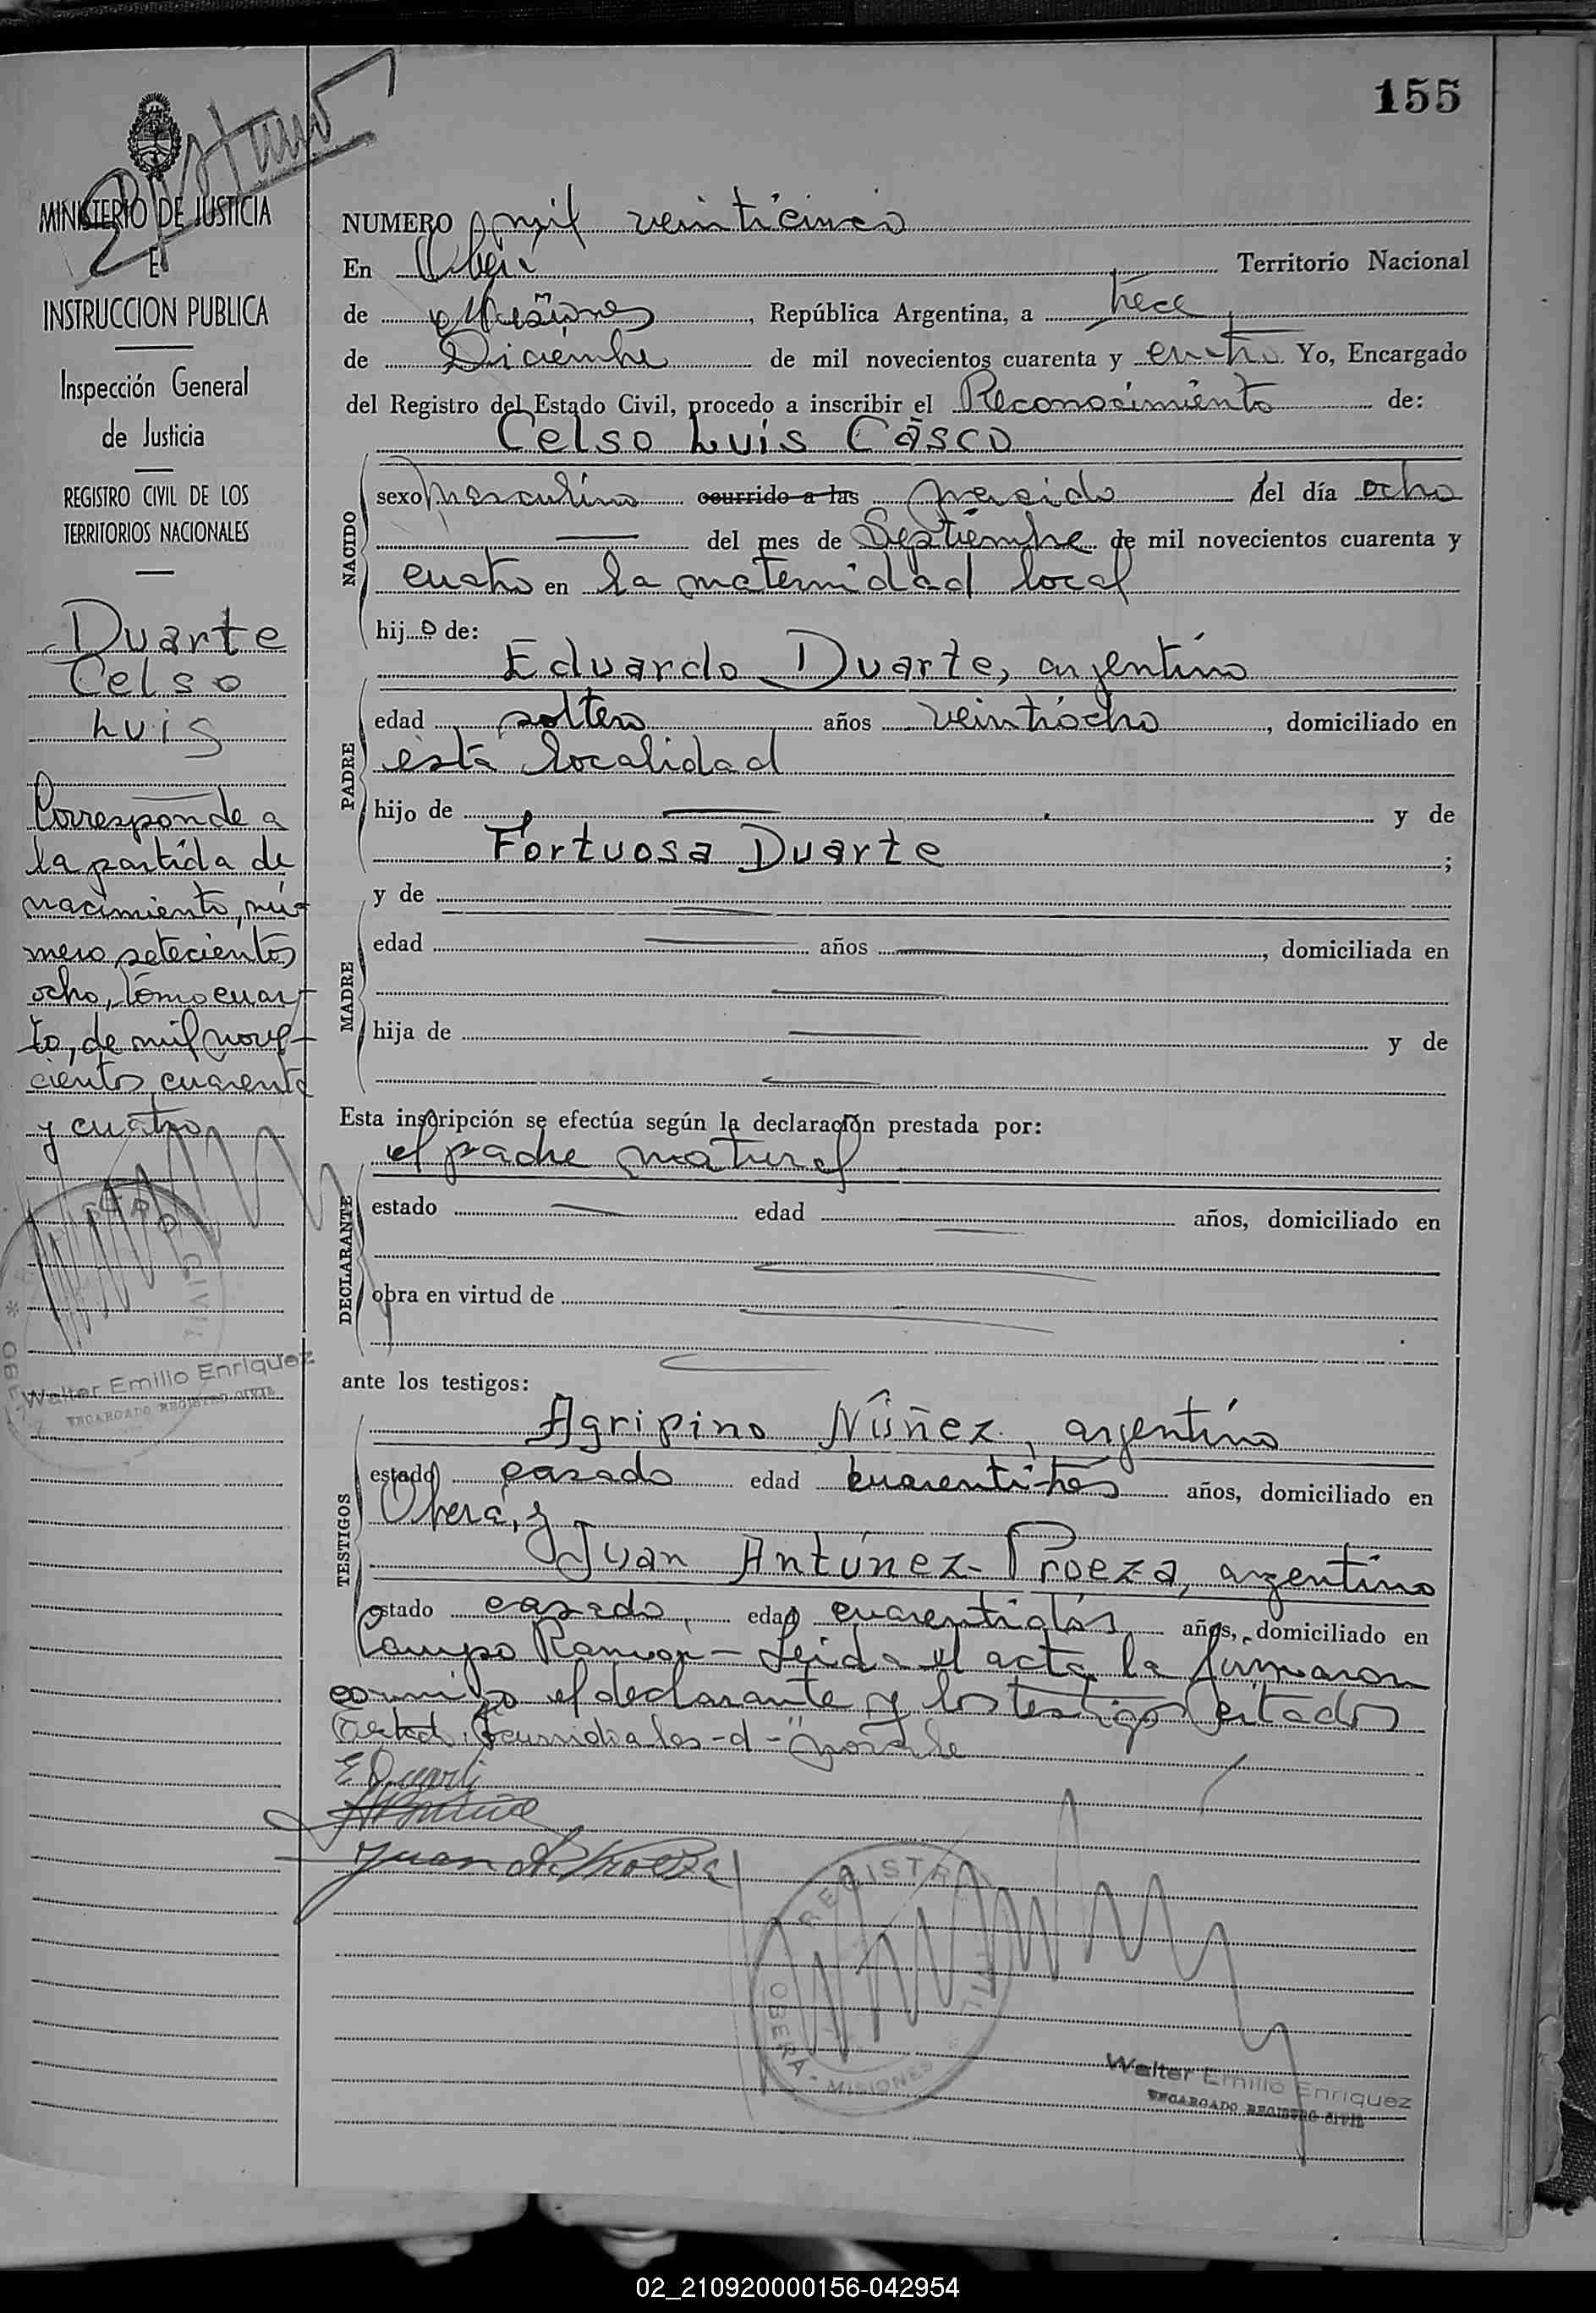 155
MINISTERIO DE JUSTICIA
E
INSTRUCCION PUBLICA
Inspección General
de Justicia
REGISTRO CIVIL DE LOS
TERRITORIOS NACIONALES
Duarte
Celso
Luis
Corresponde a
la partida de
nacimiento, nú-
mero setecientos
ocho, tomo cuar-
to, de mil nove-
cientos cuarenta
y cuatro
Walter Emilio Enriquez
ENCARGADO REGISTRO CIVIL
NUMERO mil veinticinco
En Oberá Territorio Nacional
de Misiones, República Argentina, a trece
de Diciembre de mil novecientos cuarenta y cuatro Yo, Encargado
del Registro del Estado Civil, procedo a inscribir el Reconocimiento de:
Celso Luis Casco
NACIDO
sexo masculino ocurrido a las nacido del día ocho
del mes de Septiembre de mil novecientos cuarenta y
cuatro en la maternidad local
hijo de:
Eduardo Duarte, argentino
PADRE
edad soltero años veintiocho, domiciliado en
esta localidad
hijo de y de
Fortuosa Duarte;
y de
MADRE
edad años, domiciliada en
hija de y de
Esta inscripción se efectúa según la declaración prestada por:
el padre natural
DECLARANTE
estado edad años, domiciliado en
obra en virtud de
ante los testigos:
TESTIGOS
Agripino Núñez, argentino
estado casado edad cuarentitrés años, domiciliado en
Oberá, y
Juan Antúnez-Proeza, argentino
estado casado, edad cuarentidós años, domiciliado en
Campo Ramón - Leida el acta la firmaron
conmigo el declarante y los testigos citados
ocurrido a las -d-
E Duarte
Juan A. Proeza
REGISTRO CIVIL
OBERA - MISIONES
Walter Emilio Enriquez
ENCARGADO REGISTRO CIVIL
02_210920000156-042954